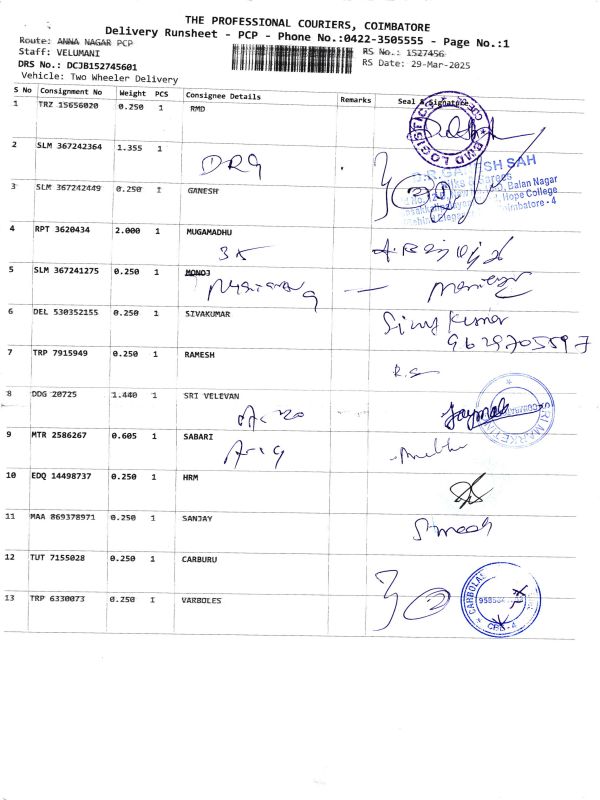 THE PROFESSIONAL COURIERS, COIMBATORE
Delivery Runsheet - PCP - Phone No.:0422-3505555 - Page No.:1
Route: ANNA NAGAR PCP
RS No.: 1527456
Staff: VELUMANI
RS Date: 29-Mar-2025
DRS No.: DCJB152745601
Vehicle: Two Wheeler Delivery
S No Consignment No Weight PCS Consignee Details Remarks Seal & Signature
1 TRZ 15656020 0.250 1 RMD
2 SLM 367242364 1.355 1
DRG
3 SLM 367242449 0.250 1 GANESH
4 RPT 3620434 2.000 1 MUGAMADHU
5 SLM 367241275 0.250 1 MONOJ
6 DEL 530352155 0.250 1 SIVAKUMAR
Siva Kumar
9629705597
7 TRP 7915949 0.250 1 RAMESH
8 DDG 20725 1.440 1 SRI VELEVAN
9 MTR 2586267 0.605 1 SABARI
10 EDQ 14498737 0.250 1 HRM
11 MAA 869378971 0.250 1 SANJAY
12 TUT 7155028 0.250 1 CARBURU
13 TRP 6330073 0.250 1 VARBOLES